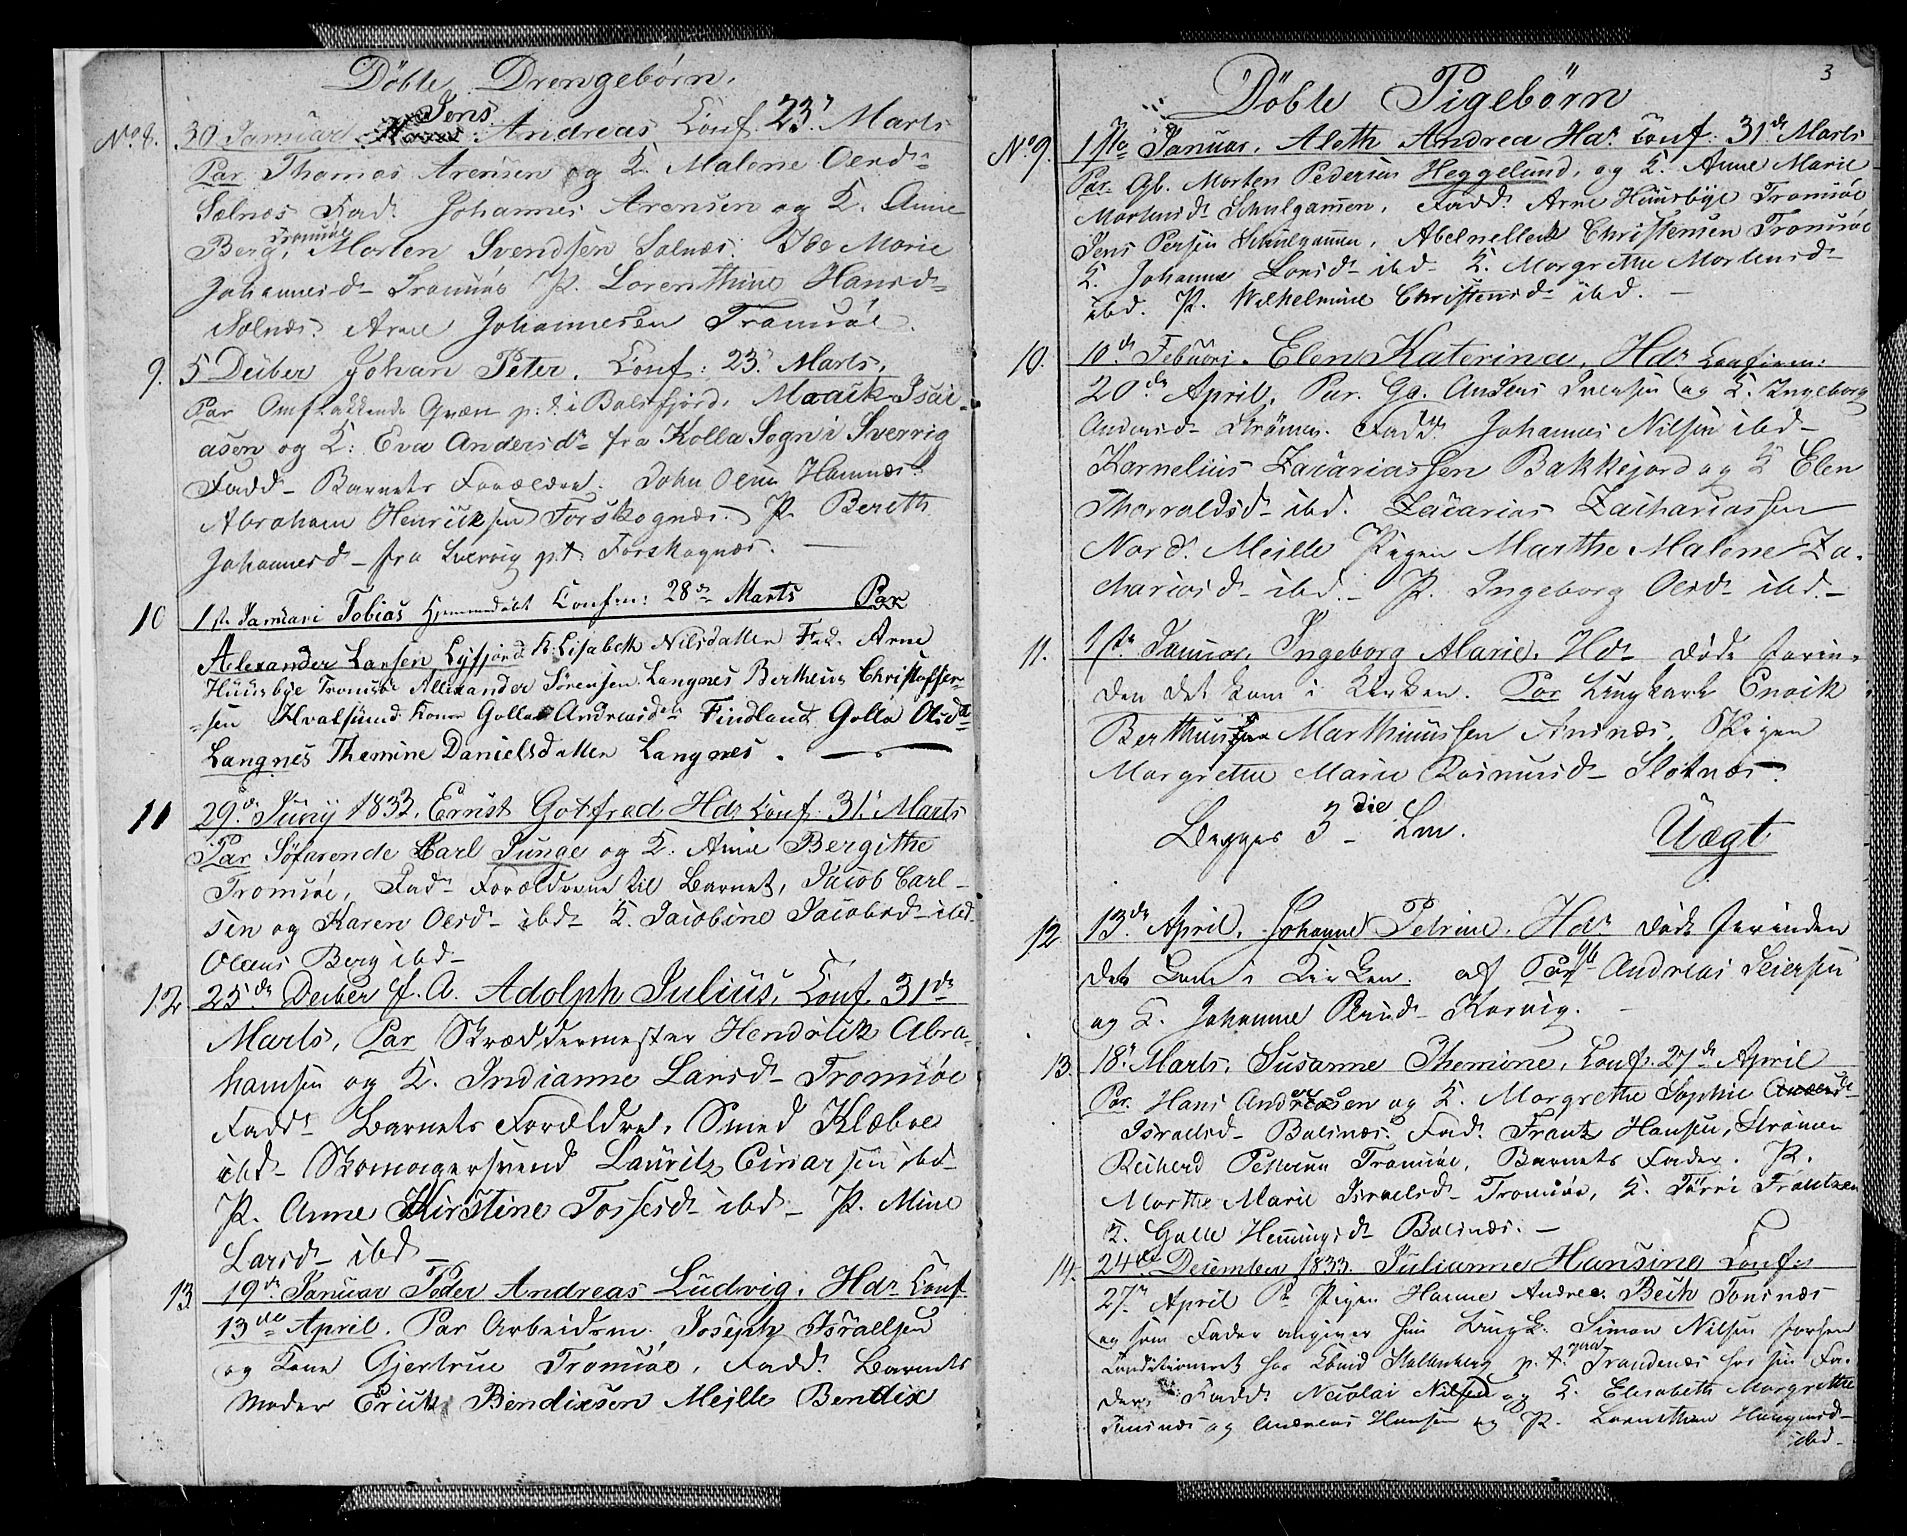 Döbte Drengebörn.
Jens
No 8. 30 Januar Andreas Conf. 23. Marts
Par Thomas Arensen og K. Malene Olesd.
Solnæs Fad. Johannes Arensen og K. Anne
Tromsøe
Berg, Morten Svendsen Solnæs. Ide Marie
Johannesd. Tromsøe P. Lorenthine Hansd.
Solnæs. Arne Johannesen Tromsøe.
9. 5 Decber Johan Peter. Conf: 23. Marts.
Par Omflakkende Qvæn p.t. i Balsfjord. Maaick Isai-
asen og K: Eva Andersd. fra Kolla Sogn i Sverrig
Fadd. Barnets Forældre. John Olsen Hamnæs.
Abraham Henriksen Forskognæs. P. Bereth
Johannesd. fra Sverrig p.t. Forskognæs.
10 1ste Januari Tobias Hjemmedøbt Confir: 28de Marts Par
Alexander Larsen Lysfjord K. Lisabeth Nilsdatter Fad. Arne
Huusbye Tromsøe Allexander Sørensen Langnes Bertheus Christoffer-
sen Hvalsund Konne Golla Andreasd. Findland Golla Olsd.
Langnes Themine Danielsdatter Langnes.
11 29de Junij 1833. Ernst Gotfred Hdr. Conf. 31. Marts
Par Søfarende Carl Junge og K. Anne Bergithe
Tromsøe, Fad. Forældrene til Barnet, Jacob Carl-
sen og Karen Olesd. ibd. K. Jacobine Jacobsd. ibd.
Olaus Berg ibd.
12 25de Decber f. A. Adolph Julius, Conf. 31de
Marts, Par Skræddermester Hendrick Abra-
hamsen og K. Indianne Larsd. Tromsøe
Fadd. Barnets Forældre, Smed Klæboe
ibd. Skomagersvend Lauritz Einarsen ibd.
P. Anne Kirstine Tossesd. ibd. P. Mine
Larsd. ibd.
13. 19de Januar Peder Andreas Ludvig. Hdr. Conf.
13de April. Par Arbeidsm. Joseph Israelsen
og Kone Gjertrue Tromsøe, Fadd. Barnets
Moder Erick Bendixsen Mejlle Bendix
3
Döbte Pigebörn
No 9. Januar. Aleth Andrea Hdr. Conf: 31de Marts
Par. Gb. Morten Pedersen Heggelund, og K. Anne Marie
Mortensd. Skulgammen. Fadd. Arne Huusbye Tromsøe
Jens Persen Skulgammen, Abelnelleck Christensen Tromsøe
K. Johanna Larsd. ibd. K. Margrethe Mortensd.
ibd. P. Wilhelmine Christensd. ibd.
10. 10de Febuari. Elen Katerina, Hdr. Confirm:
20de April, Par. Gb. Anders Iversen og K. Ingeborg
Andersd. Strømen. Fadd. Johannes Nilsen ibd.
Kornelius Zacariassen Bakkejord og K Elen
Thorvaldsd. ibd. Zacarias Zachariassen
Nord. Mejlle Pigen Marthe Malene Za-
chariasd. ibd. P. Ingeborg Olesd. ibd.
11. 1ste Januar. Ingeborg Marie. Hdr. døde foriin-
den det kom i Kirken. Par Ungkarl Enoik
Berthuus Marthinussen Ansnæs, Pigen
Margrethe Marie Rasmusd. Slotnæs.
Begges 3die Lm. Uægt
12 13de April. Johanna Petrine. Hdr. døde forinden
det kom i Kirken. af Par Gb. Andreas Seiersen
og K. Johanne Korvig.
13. 18. Marts. Susanne Themine, Conf. 27de April
Par. Hans Andreasen og K. Margrethe Sophie
Israelsd. Balsnæs. Fad. Frantz Hansen, Strømen
Richerd Pettersen Tromsøe, Barnets Fader. P.
Marthe Marie Israelsd. Tromsøe, K. Sørri Frantzen
K. Golle Hemmingsd. Balsnæs.
14. 24de December 1833. Julianne Hansine Conf:
27. April Pigen Hanne Andrea Bech Tonsnæs
og som Fader angiver hun Ungk. Simon Nilsen forhen
Conditioneret hos Kbmd. Stoltenberg p.t. Trandenæs hos sin Fa-
der, Fadd. Nicolai Nilsen og K. Elisabeth Margrethe
Tonsnæs og Andreas Hansen og P. Lornithea
ibd.